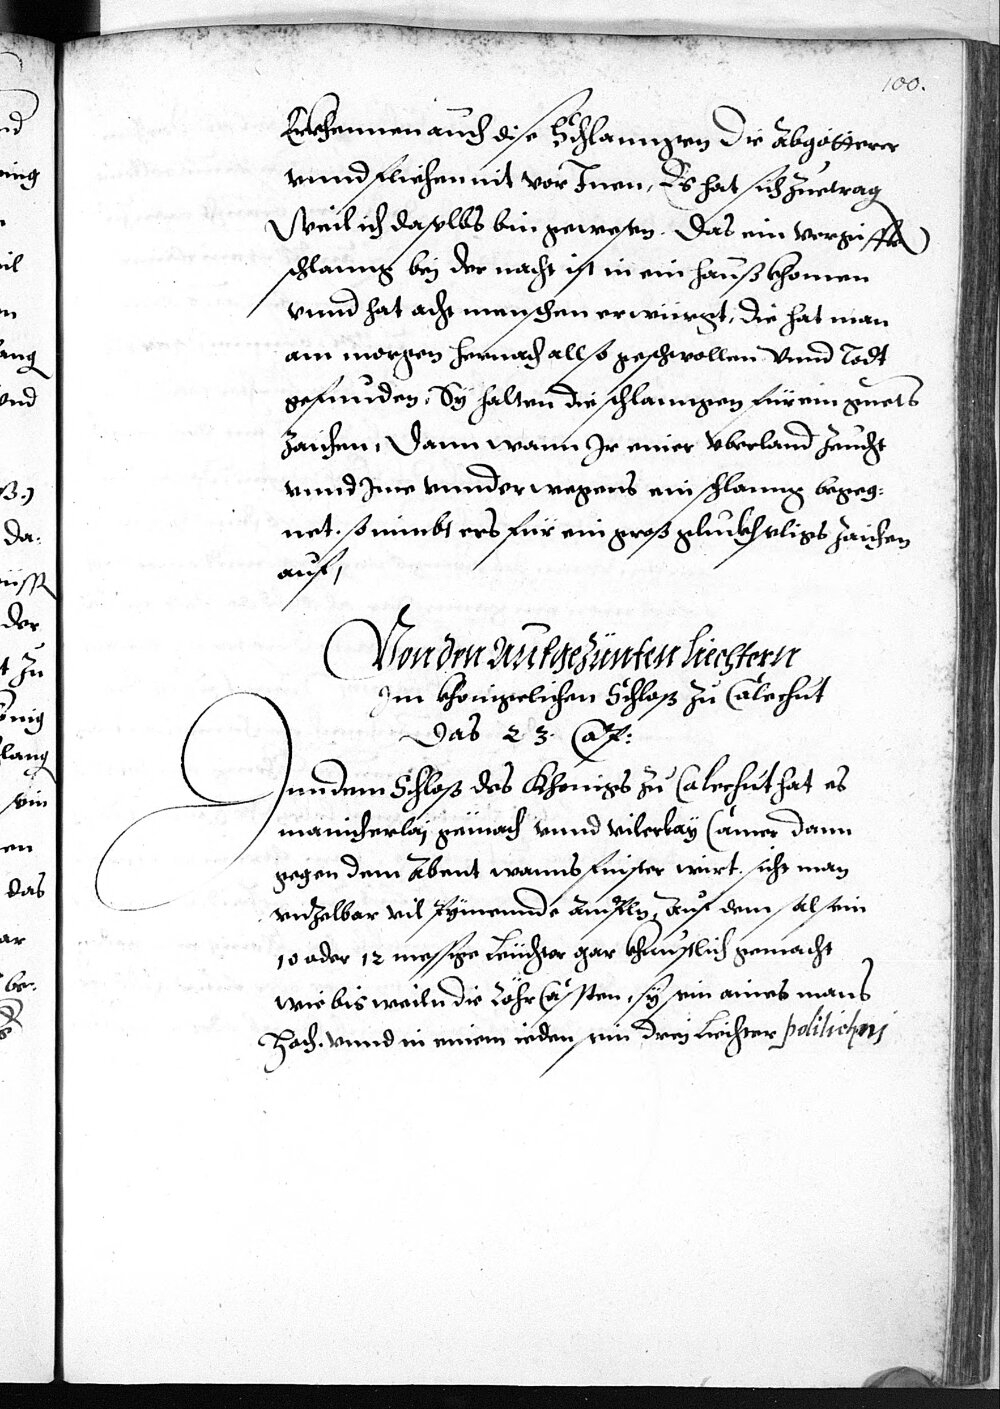 100.
Erkhennen auch dise Schlanngen die Abgötterer
vnnd fliehen nit vor Inen, Es hat sich zuetrag
Weil ich daselbs bin gewesen. Das ein vergiffte
schlanng bej der nacht ist in ein hauß khomen
vnnd hat acht menschen erwürgt, die hat man
am morgen hernach allso geschwollen vnnd Todt
gefunden, Sy halten die schlanngen für ein guets
Zaichen, Dann wann Ir einer vberland zeucht
vnnd Ime vnnderwegens ein schlanng begeg:
net. so nimbt ers für ein groß glückhseligs Zaichen
auf,
Von den Aufgezünten Liechtern
Im khonigelichen Schloß zu Calechut
Das 23. Cap:
Inn dem Schloß des Khonigs zu Calechut hat es
manicherlaj gemach vnnd vilerlay Camer dann
gegen dem Abent wanns finster wirt. sicht man
vnzelbar vil auf dem sal sein
10 oder 12 messige Leüchter gar khunstlich gemacht
wie bis weiln die Rohr Casten, sÿ sein aines mans
Hoch. vnnd in einem ieden sein drej Liechter